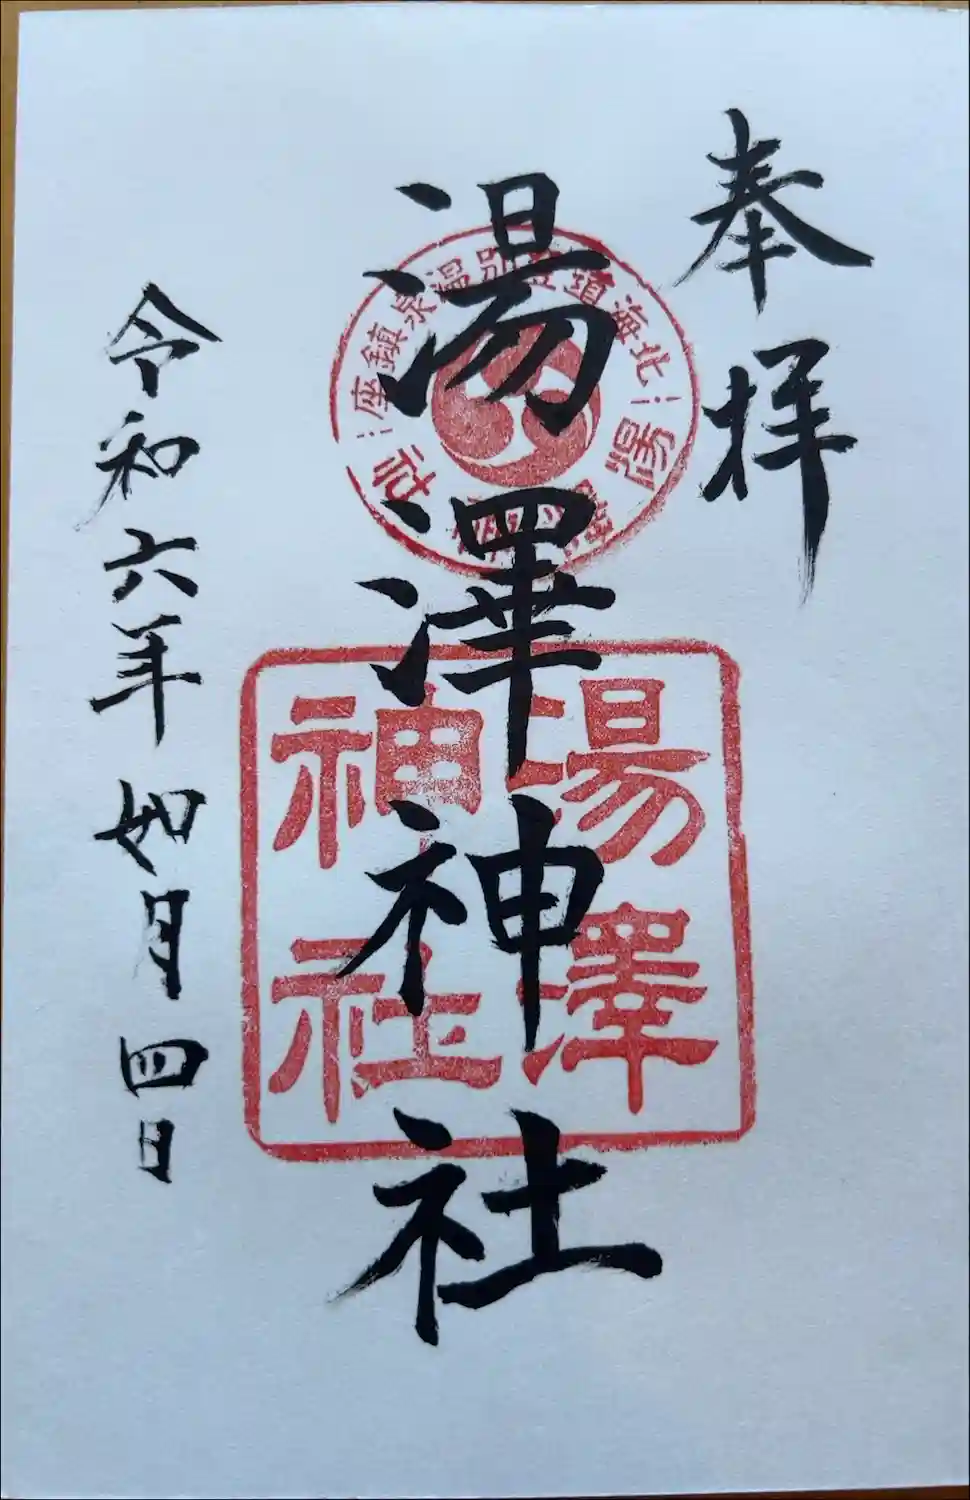 奉拝
湯澤神社
北海道登別温泉鎮座
湯澤神社
湯澤
神社
令和六年如月四日